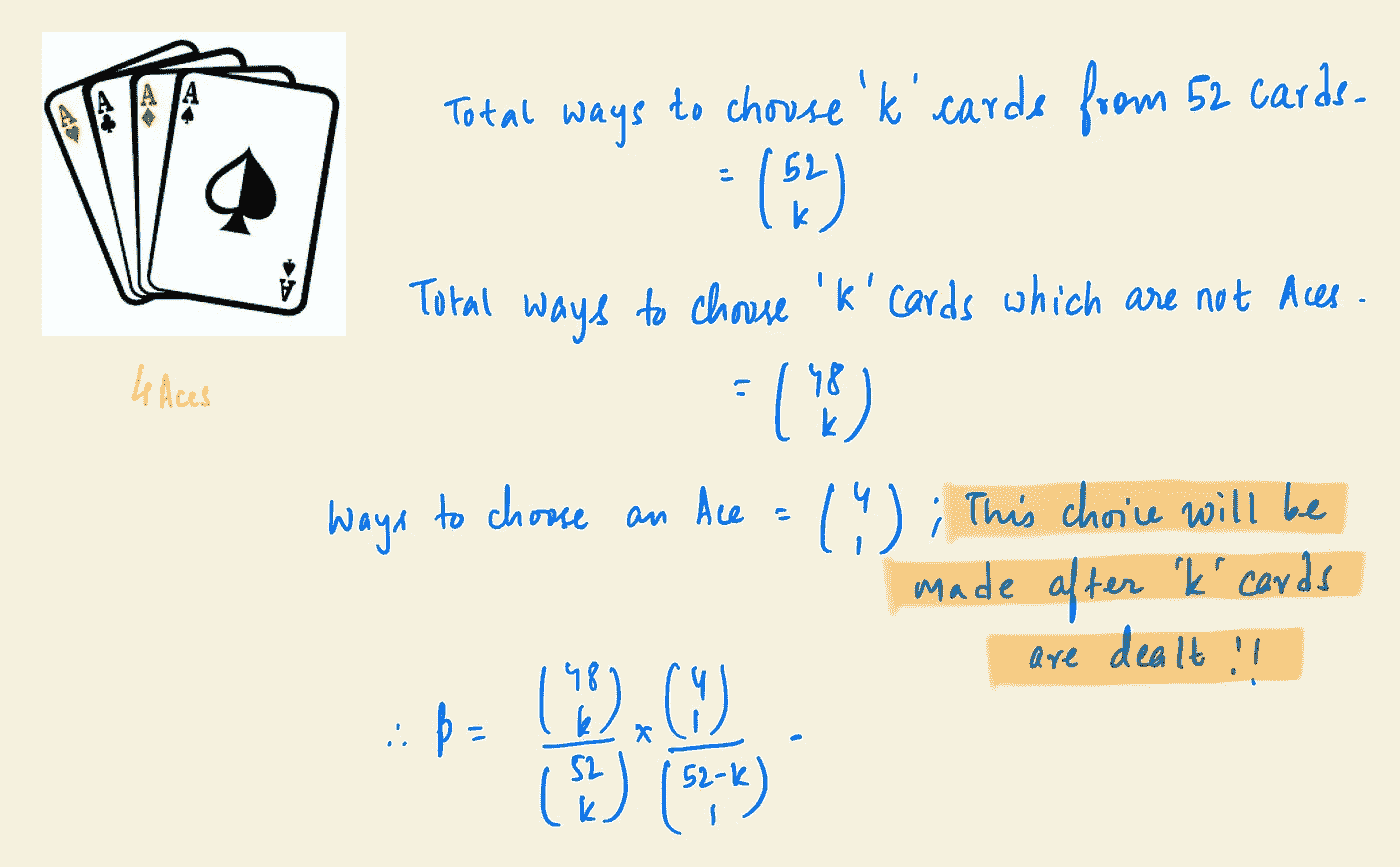 A A A A
A
4 Aces
Total ways to choose 'k' cards from 52 cards.
= (52 k)
Total ways to choose 'k' cards which are not Aces.
= (48 k)
Ways to choose an Ace = (4 1) ; This choice will be
made after 'k' cards
are dealt !!
∴ p = (48 k)/(52 k) x (4 1)/(52-k 1) .